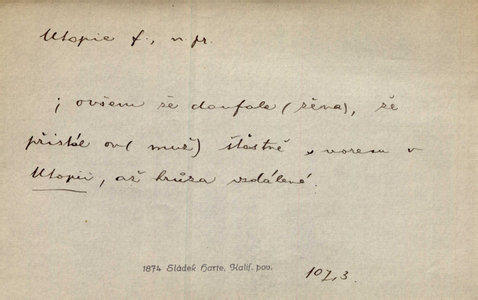 Utopie f., n. pr.
; ovšem že doufala (žena), že
přistál on (muž) šťastně s vorem v
Utopii, až hrůza vzdálené.
1874 Sládek Harte, Kalif. pov.
107,3.